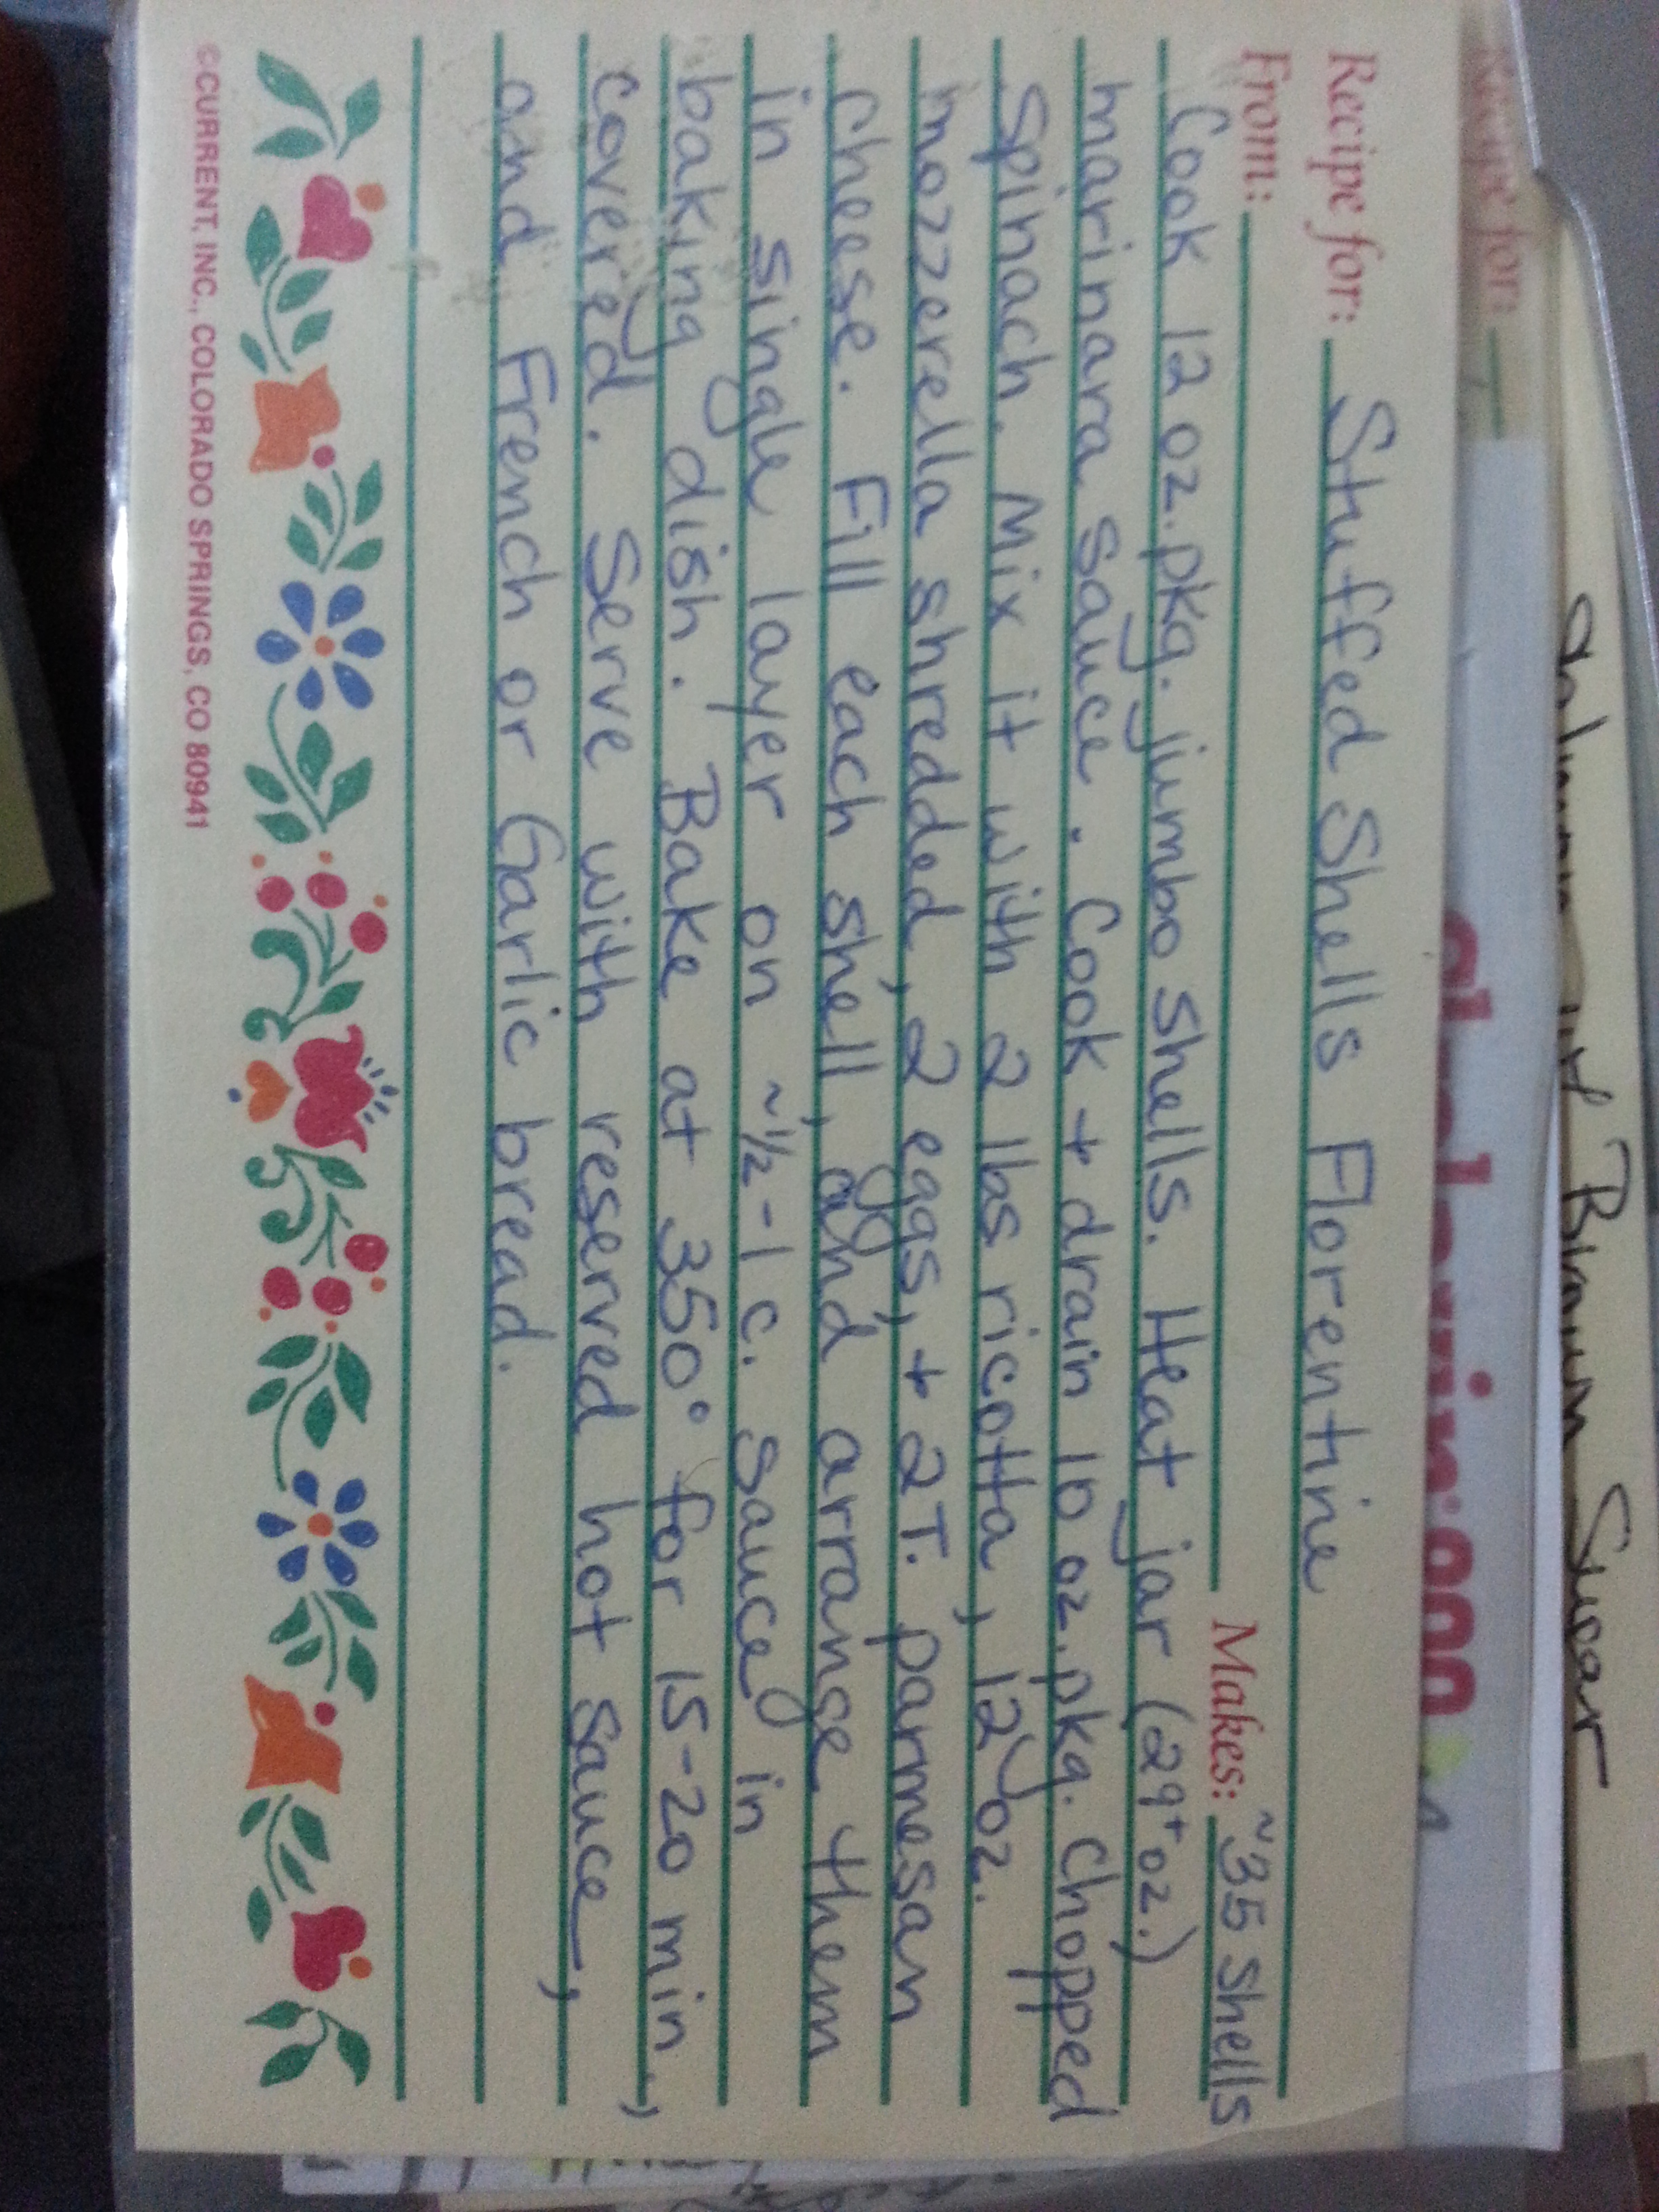 Recipe for: Stuffed Shells Florentine
From: Makes: ~35 shells
Cook 12 oz. pkg. jumbo shells. Heat jar (29+ oz.)
marinara sauce. Cook + drain 10 oz. pkg. chopped
spinach. Mix it with 2 lbs ricotta, 12 oz.
mozzerella shredded, 2 eggs, + 2T. parmesan
cheese. Fill each shell, and arrange them
in single layer on ~½-1 c. sauce in
baking dish. Bake at 350° for 15-20 min.,
covered. Serve with reserved hot sauce,
and French or Garlic bread.
©CURRENT, INC., COLORADO SPRINGS, CO 80941
Recipe for:
Brown Sugar